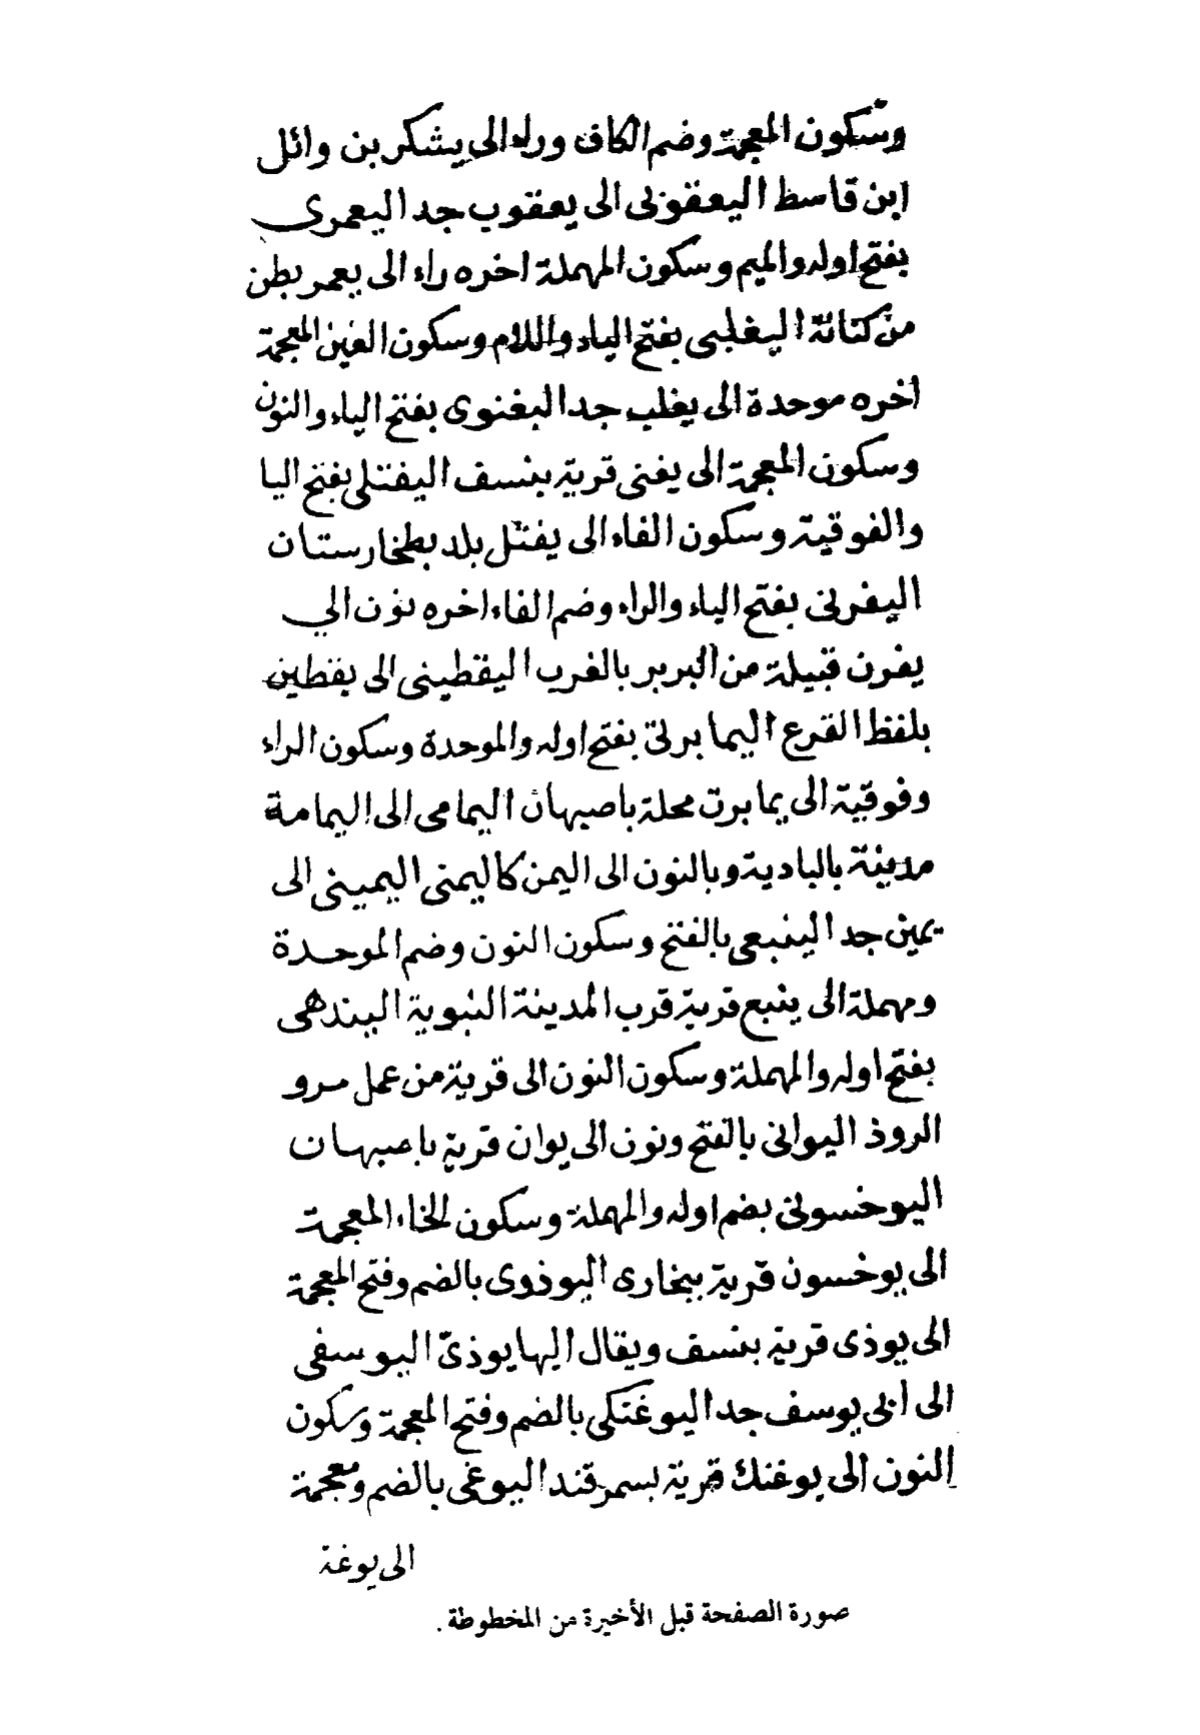 وسكون المعجمة وضم الكاف وراء الى يشكر بن وائل
ابن قاسط اليعقوبى الى يعقوب جد اليعمرى
بفتح اوله والميم وسكون المهملة اخره راء الى يعمر بطن
من كنانة اليغلبى بفتح الياء واللام وسكون الغين المعجمة
اخره موحدة الى يغلب جد اليغنوى بفتح الياء والنون
وسكون المعجمة الى يغنى قرية بنسف اليفتلى بفتح اليا
والفوقية وسكون الفاء الى يفتل بلد بطخارستان
اليفرنى بفتح الياء والراء وضم الفاء اخره نون الى
يفرن قبيلة من البربر بالغرب اليقطينى الى يقطين
بلفظ القرع اليمابرتى بفتح اوله والموحدة وسكون الراء
وفوقية الى يمابرت محلة باصبهان اليمامى الى اليمامة
مدينة بالبادية وبالنون الى اليمن كاليمنى اليمينى الى
يمين جد الينبعى بالفتح وسكون النون وضم الموحدة
ومهملة الى ينبع قرية قرب المدينة النبوية اليندهى
بفتح اوله والمهملة وسكون النون الى قرية من عمل مرو
الروذ اليوانى بالفتح ونون الى يوان قرية باصبهان
اليوخسونى بضم اوله والمهملة وسكون الخاء المعجمة
الى يوخسون قرية ببخارى اليوذوى بالضم وفتح المعجمة
الى يوذى قرية بنسف ويقال اليها يوذىّ اليوسفى
الى ابى يوسف جد اليوغنكى بالضم وفتح المعجمة وسكون
النون الى يوغنك قرية بسمرقند اليوغى بالضم ومعجمة
الى يوغة
صورة الصفحة قبل الأخيرة من المخطوطة .